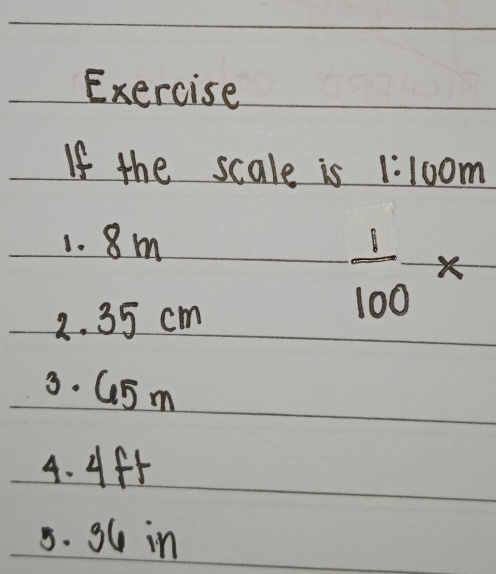 Exercise
If the scale is 1:100m
1. 8 m
1/100 ×
2. 35 cm
3. 65 m
4. 4 ft
5. 36 in